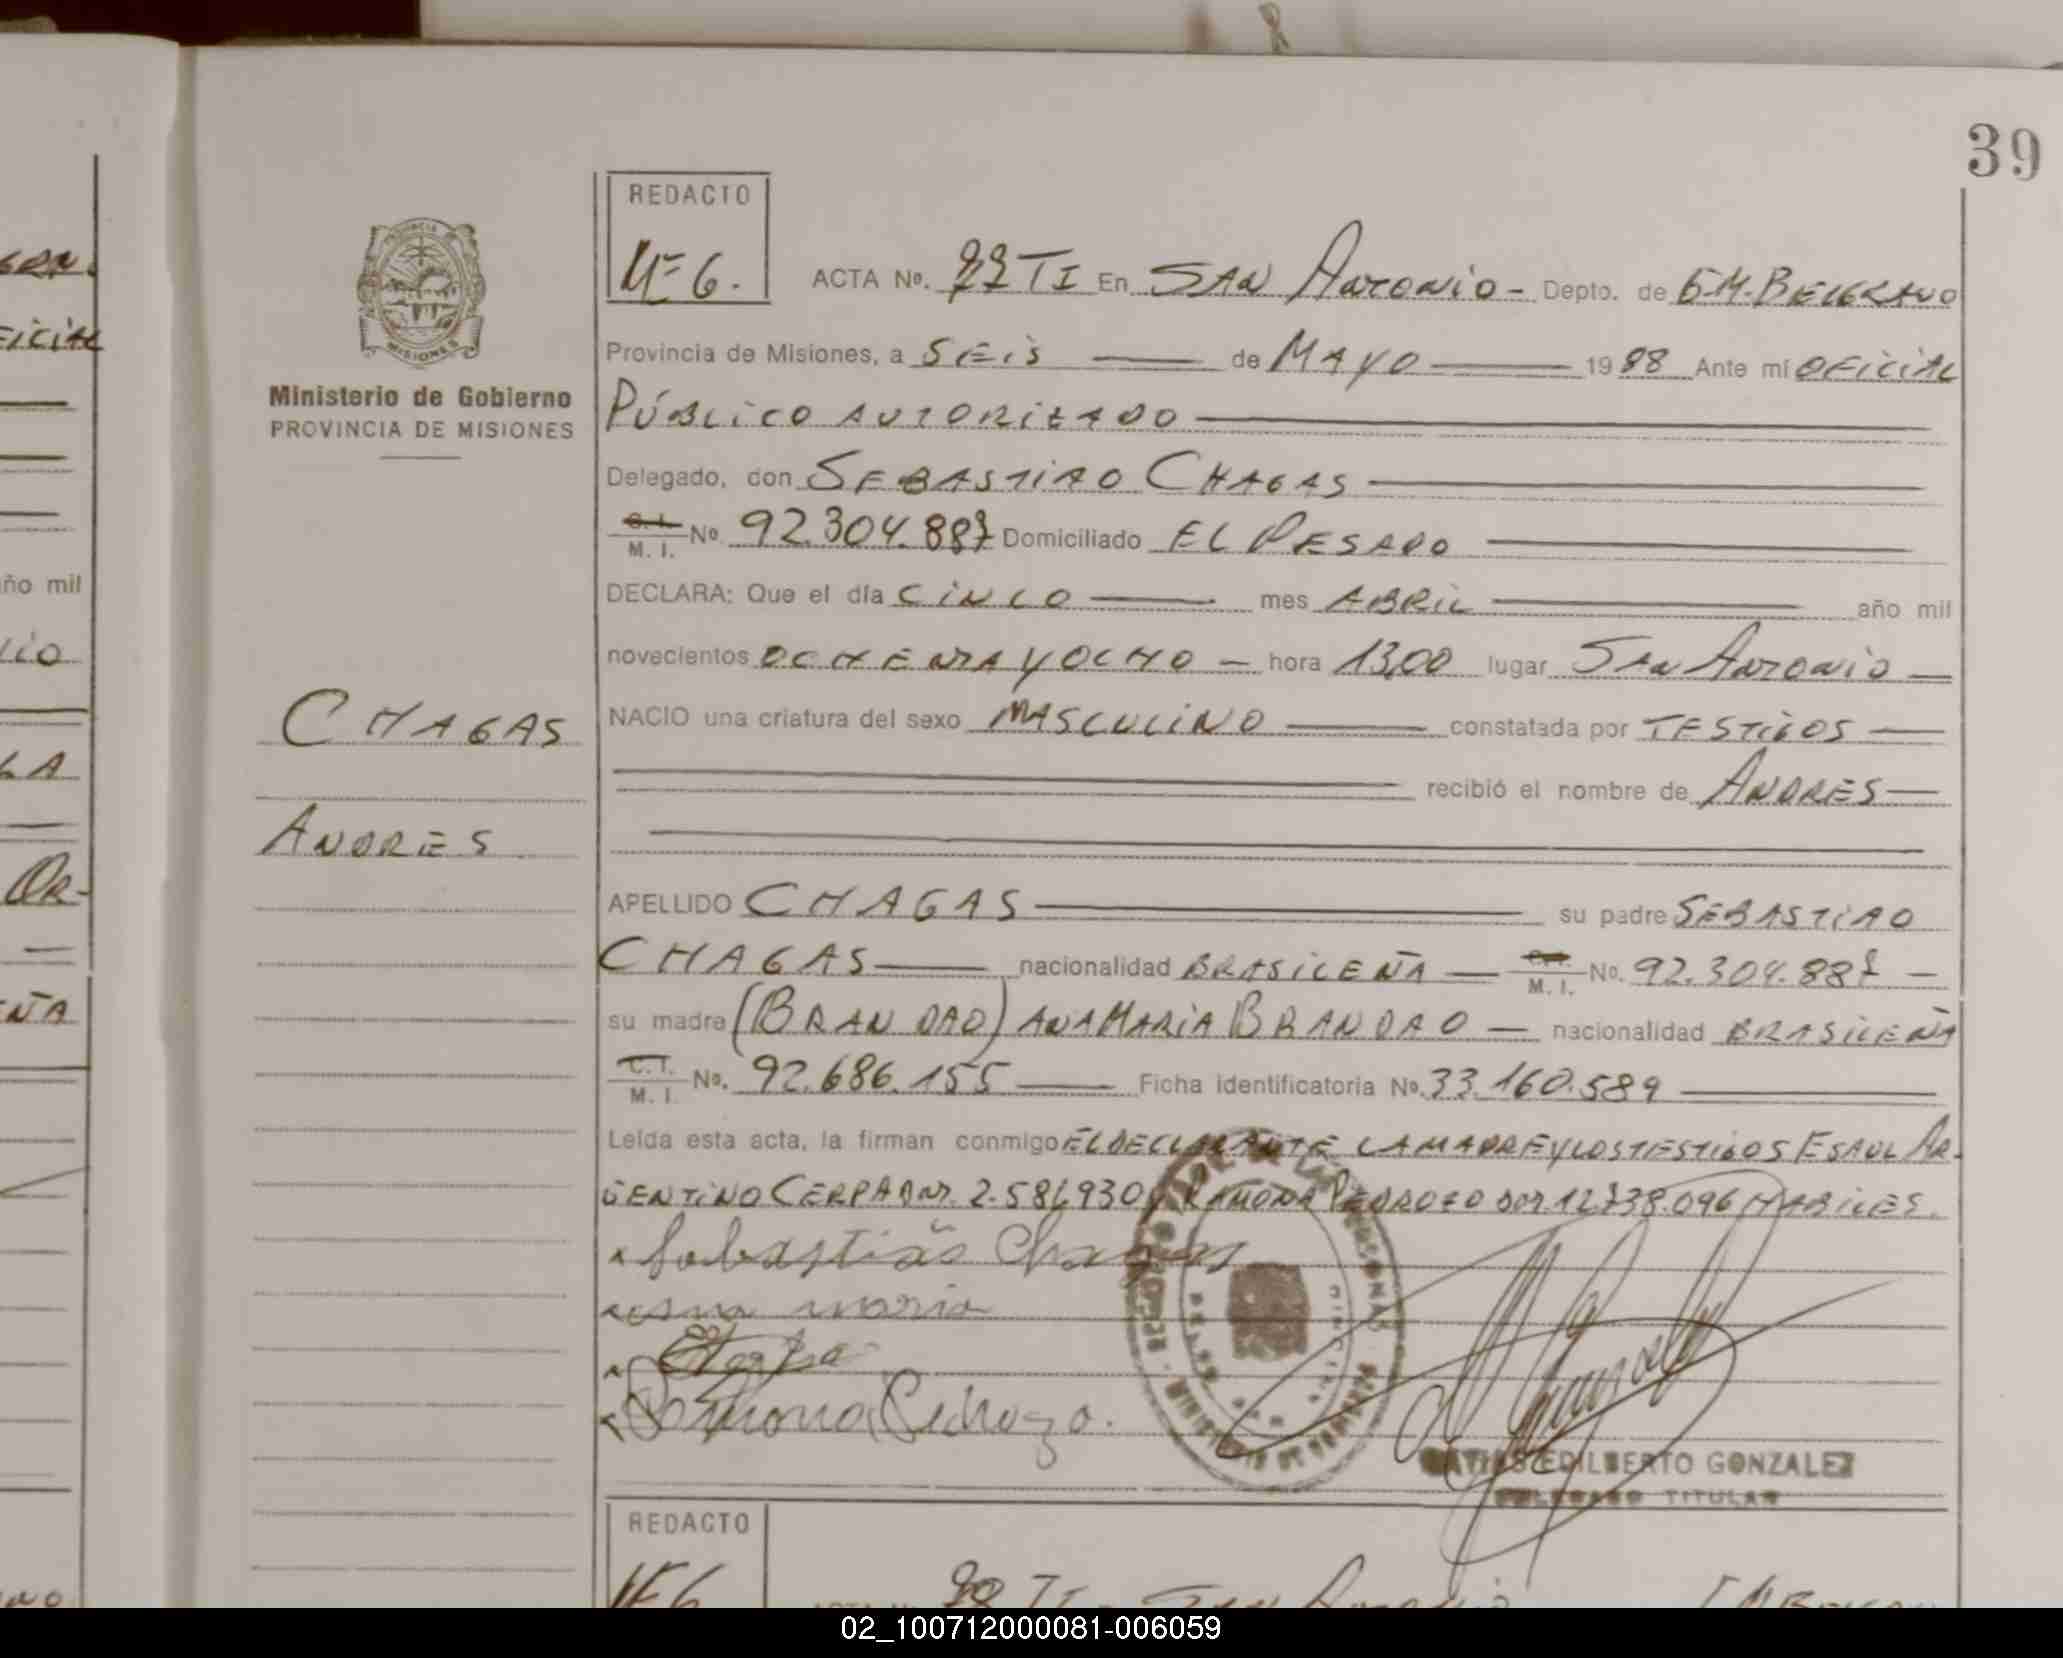 39
REDACTO
Nº 6.
ACTA Nº. 77 TI En SAN ANTONIO - Depto. de G.M. BELGRANO
Provincia de Misiones, a SEIS de MAYO 1988 Ante mí OFICIAL
PÚBLICO AUTORIZADO
Delegado, don SEBASTIAO CHAGAS
C. I. M. I. Nº 92.304.887 Domiciliado EL PESADO
DECLARA: Que el día CINCO mes ABRIL año mil
novecientos OCHENTA Y OCHO - hora 13,00 lugar SAN ANTONIO
NACIO una criatura del sexo MASCULINO constatada por TESTIGOS
recibió el nombre de ANDRES
APELLIDO CHAGAS su padre SEBASTIAO
CHAGAS nacionalidad BRASILEÑA M. I. Nº. 92.304.887
su madre (BRANDAO) ANA MARIA BRANDAO nacionalidad BRASILEÑA
C. I. M. I. Nº. 92.686.155 Ficha identificatoria Nº. 33.160.589
Leída esta acta, la firman conmigo EL DECLARANTE LA MADRE Y LOS TESTIGOS ESAUL AR-
GENTINO CERPA DNI. 2.586.930 y RAMONA PEDROZO DNI. 12.738.096 HABILES.
Sebastião Chagas
ana maria
Ramona Pedrozo.
MATIAS EDILBERTO GONZALEZ
DELEGADO TITULAR
PROVINCIA DE
MISIONES
Ministerio de Gobierno
PROVINCIA DE MISIONES
CHAGAS
ANDRES
REDACTO
Nº 6
año mil
02_100712000081-006059